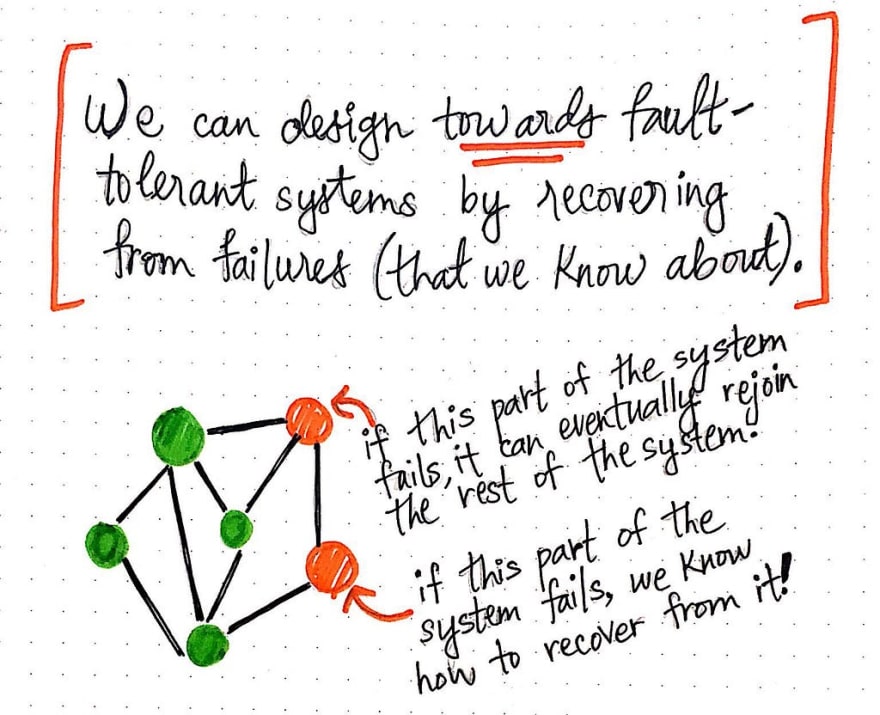 We can design towards fault-
tolerant systems by recovering
from failures (that we know about).
if this part of the system
fails, it can eventually rejoin
the rest of the system.
if this part of the
system fails, we know
how to recover from it!